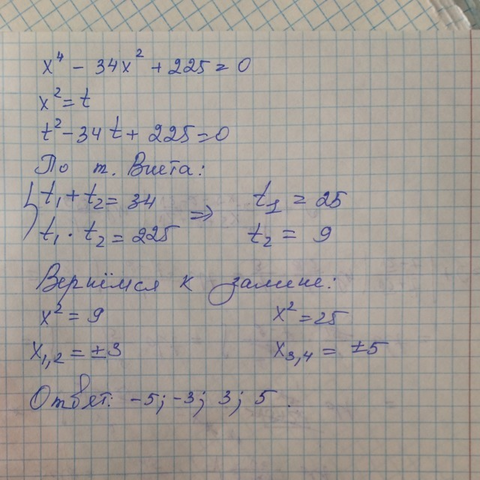 x⁴ - 34x² + 225 = 0
x² = t
t² - 34t + 225 = 0
По т. Виета:
{ t₁ + t₂ = 34 ⇒ t₁ = 25
t₁ · t₂ = 225 t₂ = 9
Вернёмся к замене:
x² = 9 x² = 25
x₁,₂ = ±3 x₃,₄ = ±5
Ответ: -5; -3; 3; 5.